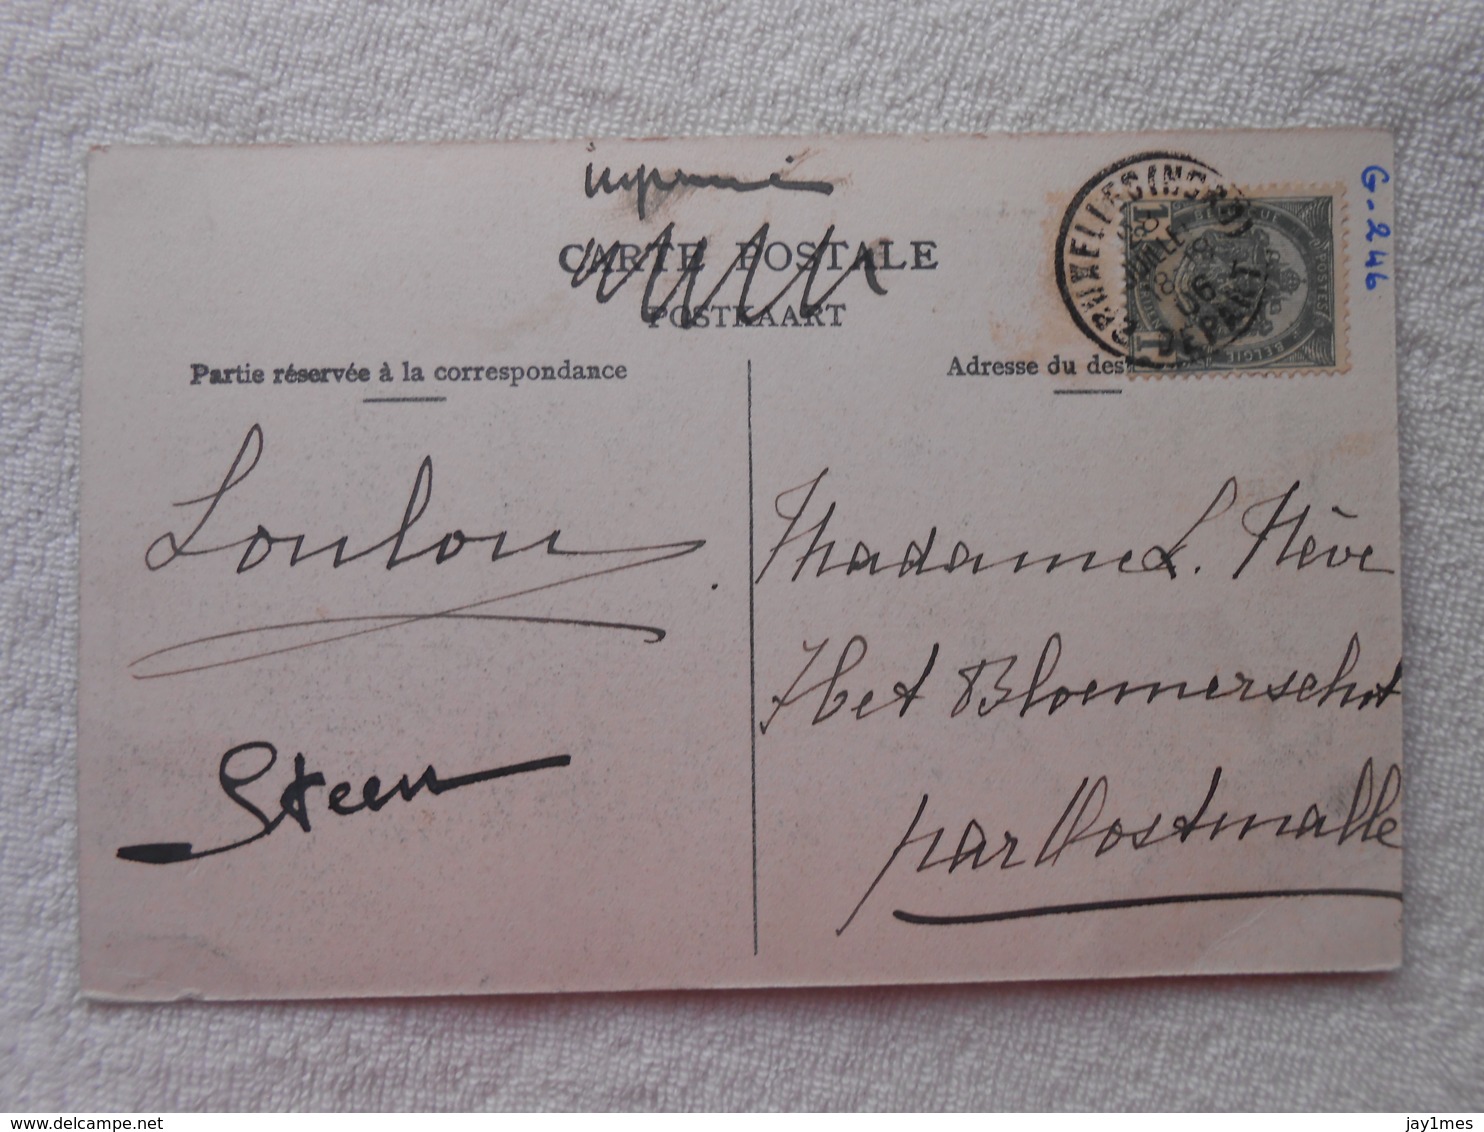 imprimé
G-246
CARTE POSTALE
POSTKAART
Partie réservée à la correspondance
Adresse du des
BRUXELLES
DEPART
JUILLET
06
BELGIE
POSTES
1
1
Loulou.
Steen
Madame L. Nève
Het Bloemerschot
par Oostmalle
delcampe.net
jay1mes